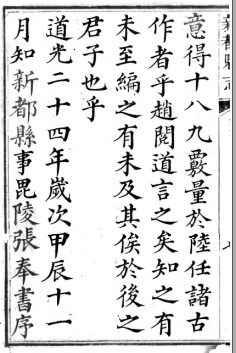 意得十八九覈量於陸任諸古
作者乎趙閱道言之矣知之有
未至編之有未及其俟於後之
君子也乎
道光二十四年歲次甲辰十一
月知新都縣事毘陵張奉書序